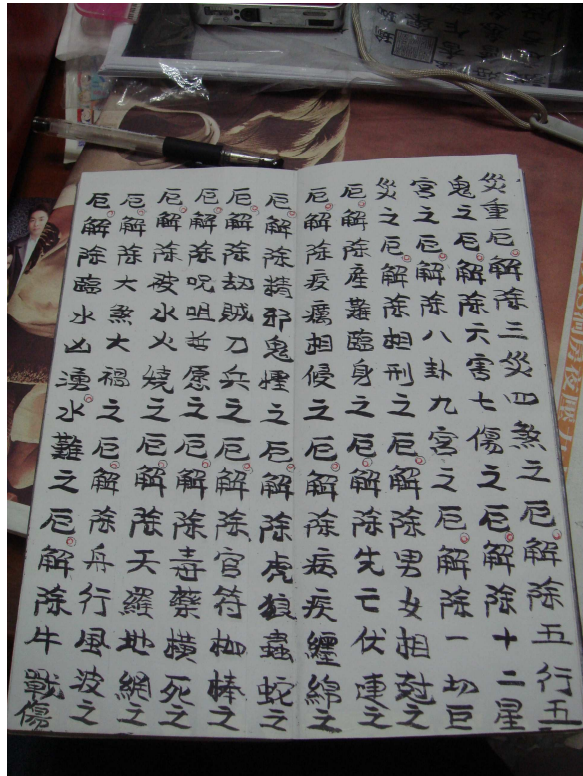 災重厄解除三災四煞之厄解除五行五
鬼之厄解除六害七傷之厄解除十二星
宮之厄解除八卦九宮之厄解除一切巨
災之厄解除相刑之厄解除男女相尅之
厄解除産難臨身之厄解除先亡伏連之
厄解除疫癘相侵之厄解除病疾纏綿之
厄解除精邪鬼怪之厄解除虎狼蟲蛇之
厄解除劫賊刀兵之厄解除官符枷棒之
厄解除呪咀誓原之厄解除毒藥橫死之
厄解除被水火燒之厄解除天羅地網之
厄解除大煞大禍之厄解除舟行風波之
厄解除臨水凶湧水難之厄解除牛戰傷